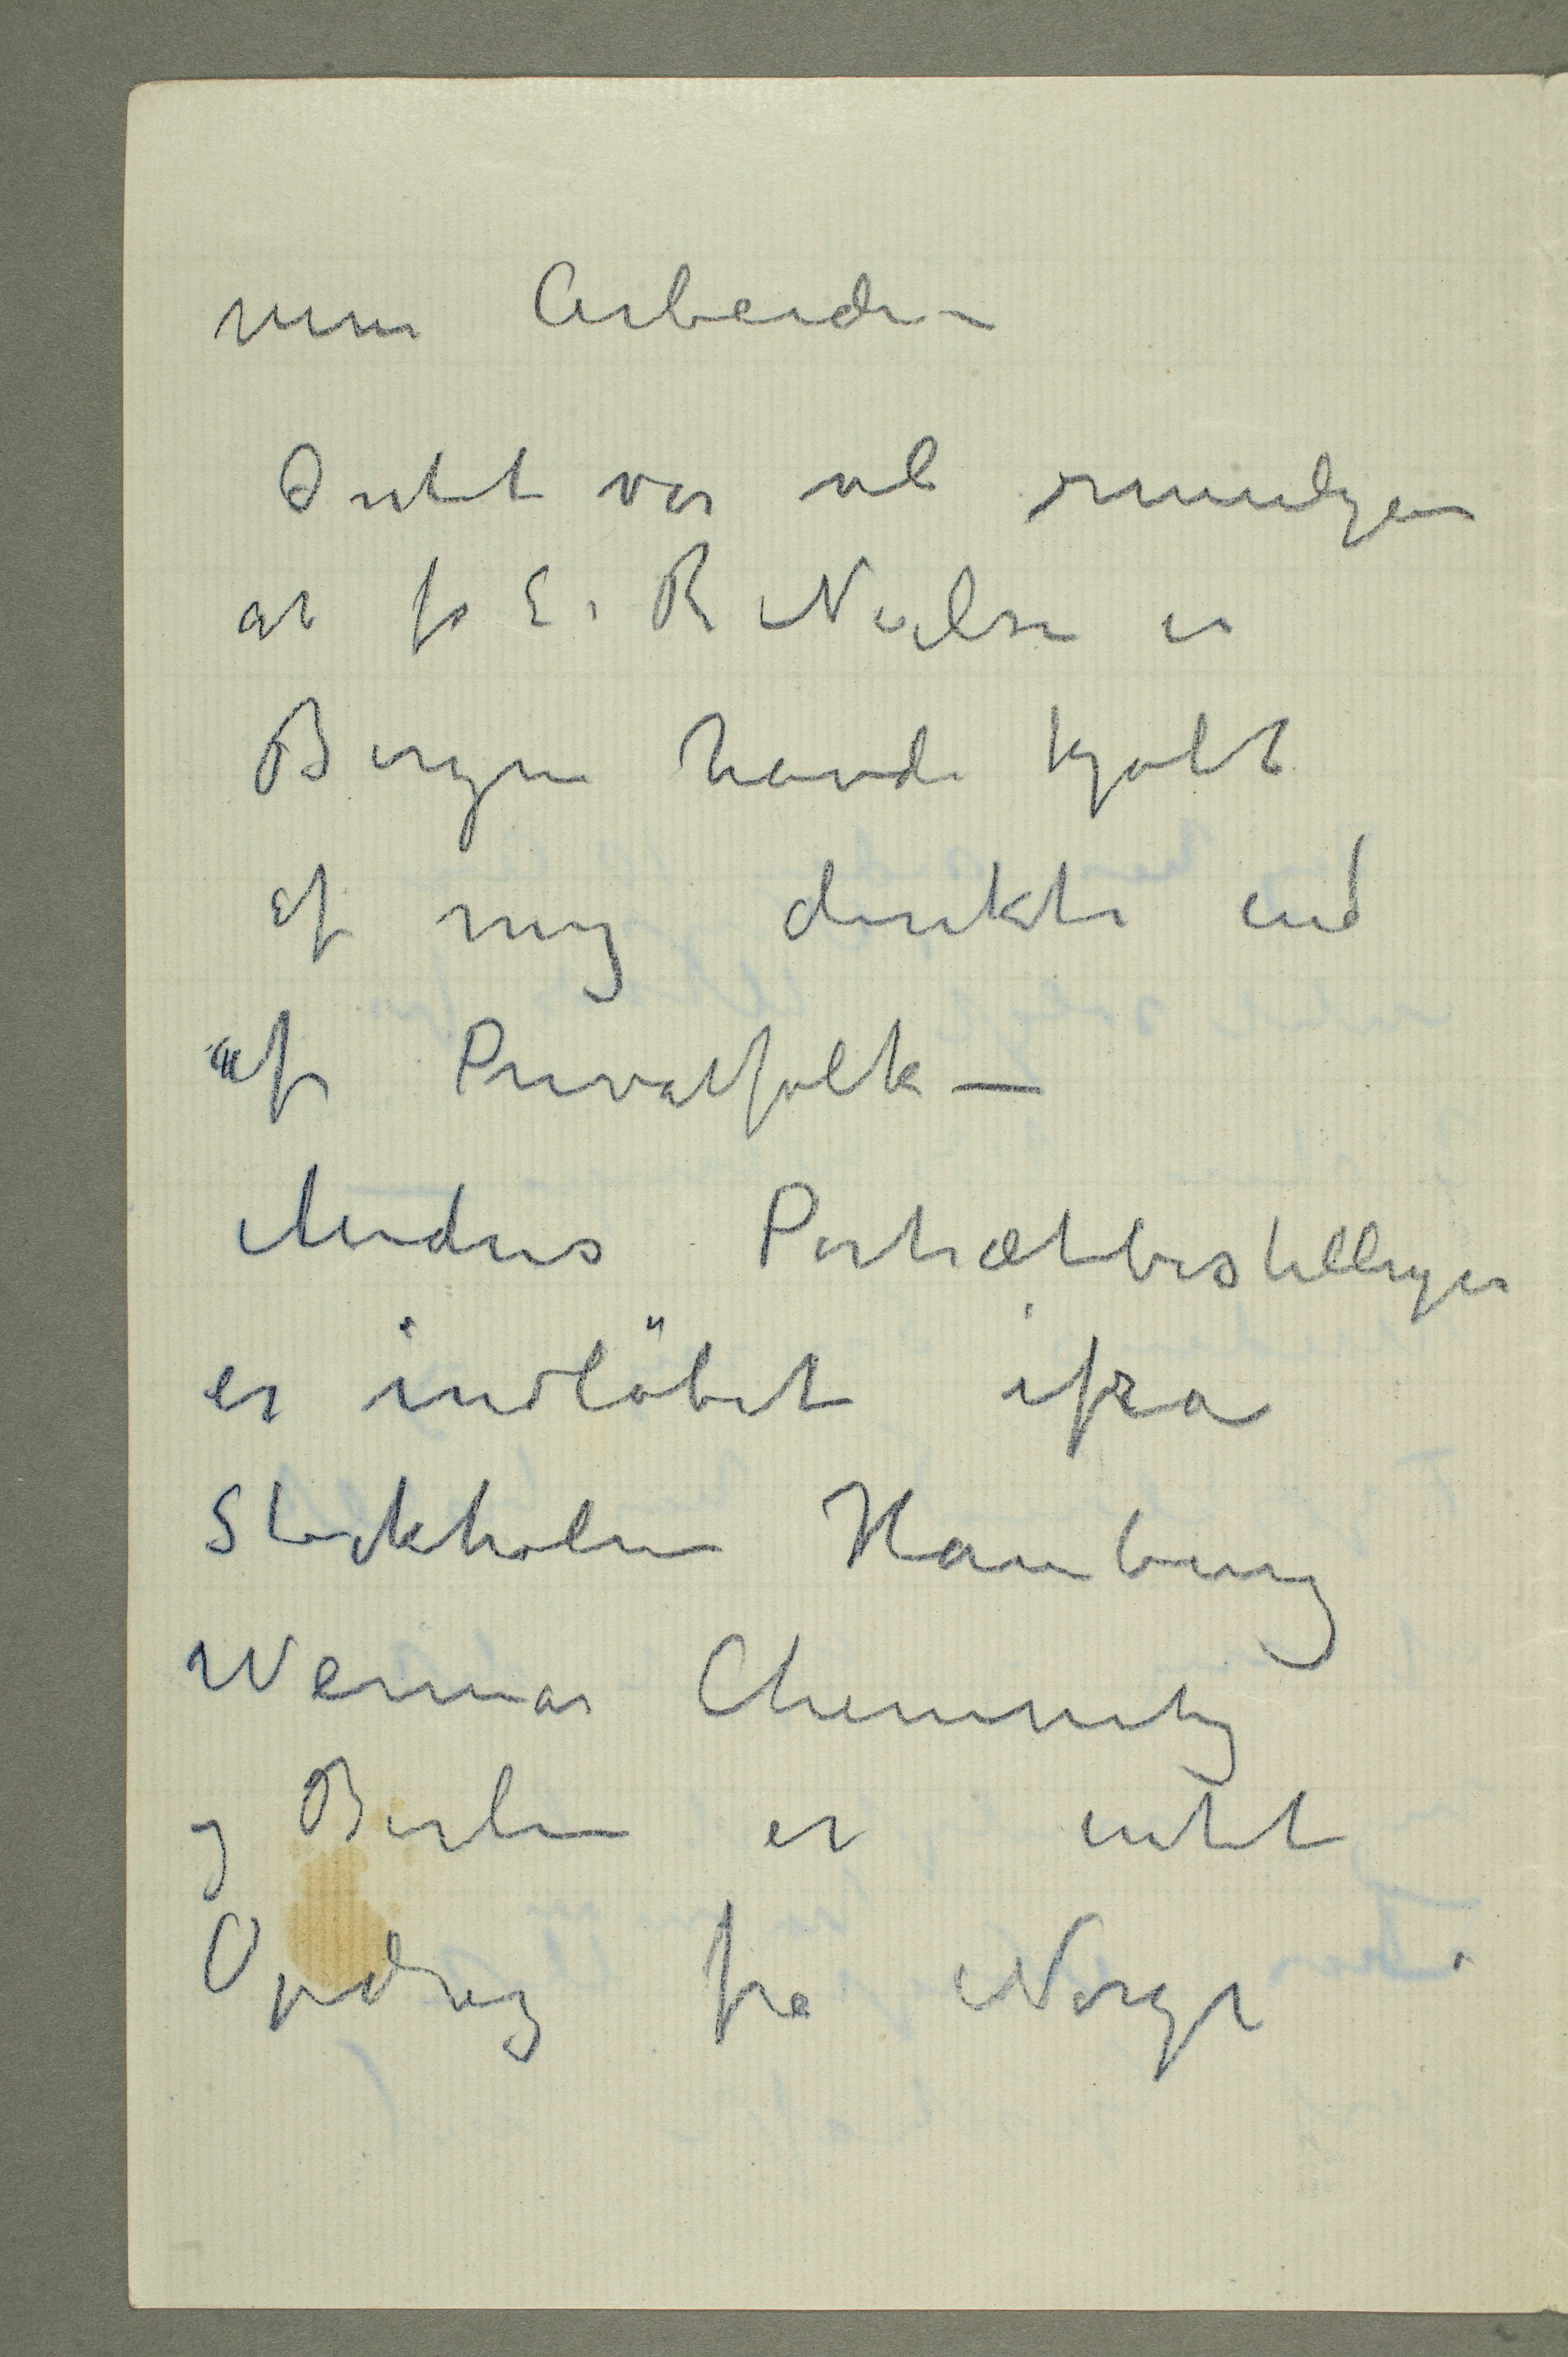 mine Arbeider –
Dettte var vel rimeligere
at fr E. B Nielsen i
Bergen havde kjøbt
af mig direkte end
af Privatfolk —
Medens Portrætbestillinger
er indløbet ifra
Stockholm Hamburg
Weimar Chemnitz
og Berlin er intet
Opdrag fra Norge